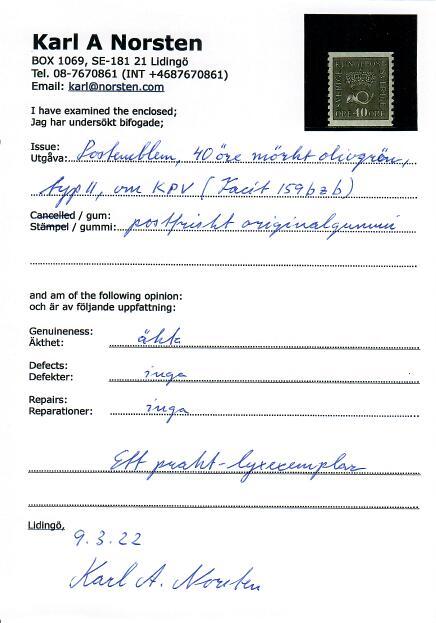 Karl A Norsten
BOX 1069, SE-181 21 Lidingö
Tel. 08-7670861 (INT +4687670861)
Email: karl@norsten.com
SVERIGE KUNGL POST SVERIGE
ÖRE 40 ÖRE
I have examined the enclosed;
Jag har undersökt bifogade;
Issue:
Utgåva: Postemblem, 40 öre mörkt olivgrön,
typ II, vm KPV (Facit 159bzb)
Cancelled / gum:
Stämpel / gummi: postfriskt originalgummi
and am of the following opinion:
och är av följande uppfattning:
Genuineness:
Äkthet: äkta
Defects:
Defekter: inga
Repairs:
Reparationer: inga
Ett prakt-lyxexemplar
Lidingö,
9.3.22
Karl A. Norsten